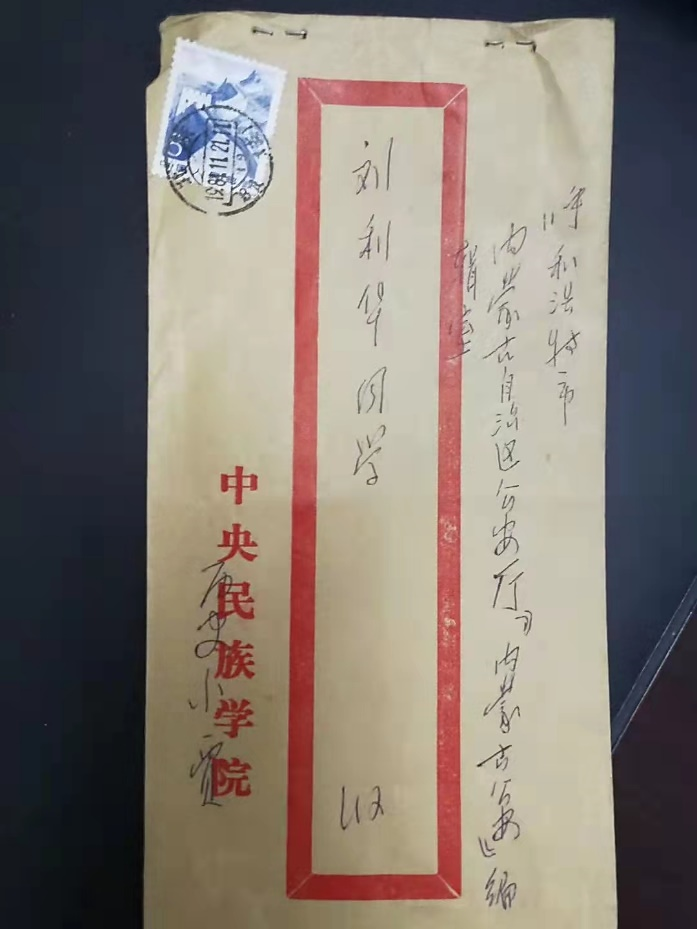 呼和浩特市
内蒙古自治区公安厅《内蒙古公安》编
辑室
刘利华同学
收
中央民族学院
历史小贾
1984.11.21